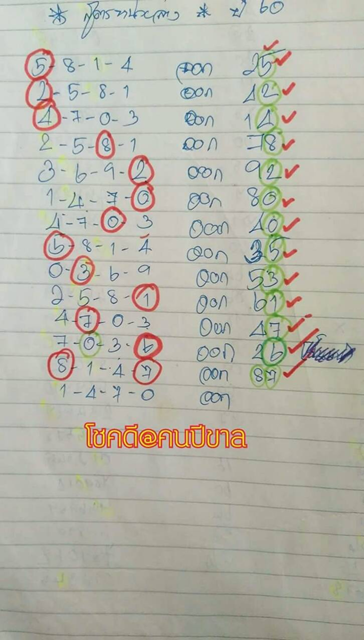 * สูตรหนุ่มลาว * ปี 60
5-8-1-4 ออก 25
2-5-8-1 ออก 42
4-7-0-3 ออก 14
2-5-8-1 ออก 78
3-6-9-2 ออก 92
1-4-7-0 ออก 80
4-7-0-3 ออก 40
5-8-1-4 ออก 35
0-3-6-9 ออก 53
2-5-8-1 ออก 61
4-7-0-3 ออก 47
7-0-3-6 ออก 26
8-1-4-7 ออก 87
1-4-7-0 ออก
โชคดี@คนปีขาล